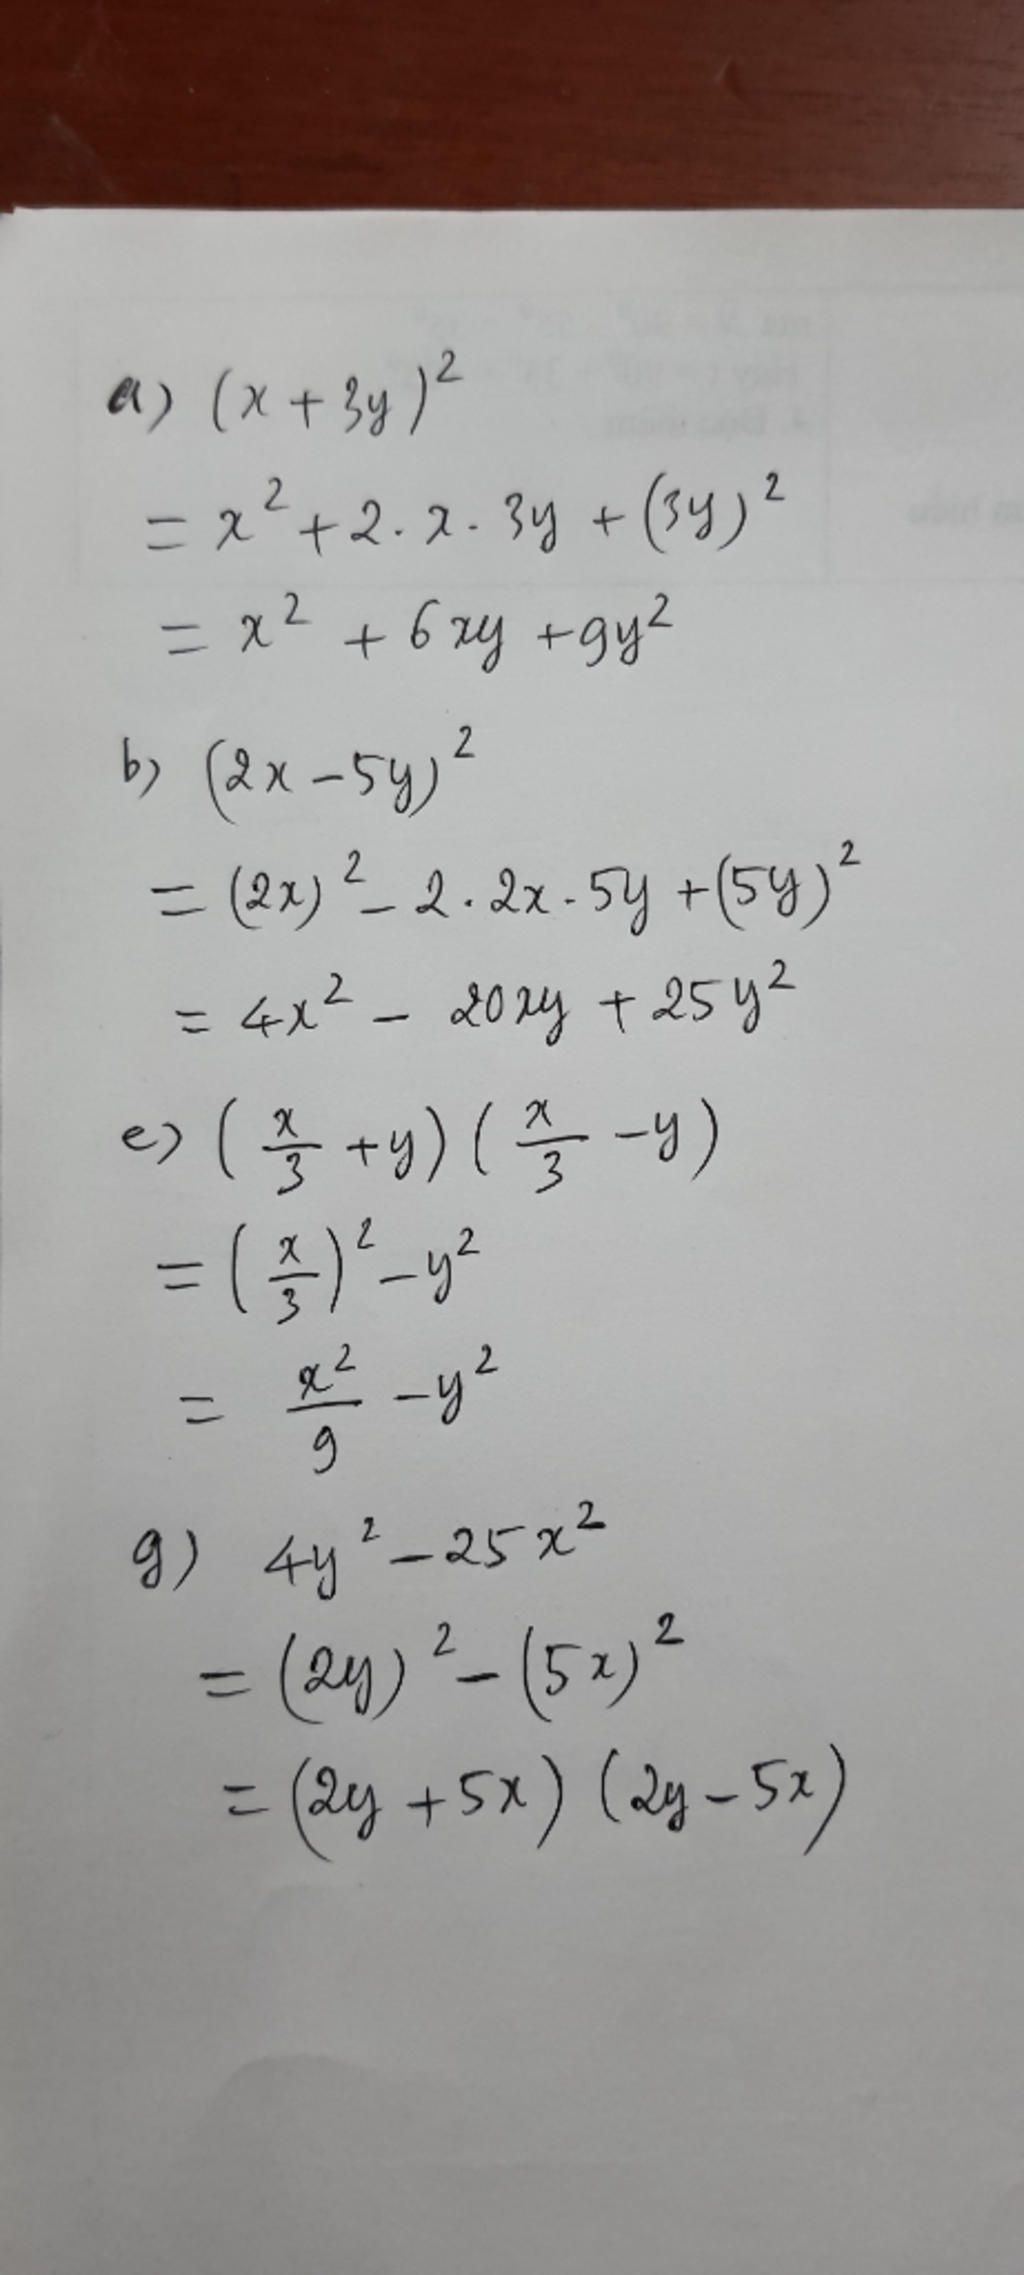 a) (x + 3y)²
= x² + 2 . x . 3y + (3y)²
= x² + 6xy + 9y²
b) (2x - 5y)²
= (2x)² - 2 . 2x . 5y + (5y)²
= 4x² - 20xy + 25y²
e) (x/3 + y) (x/3 - y)
= (x/3)² - y²
= x²/9 - y²
g) 4y² - 25x²
= (2y)² - (5x)²
= (2y + 5x) (2y - 5x)